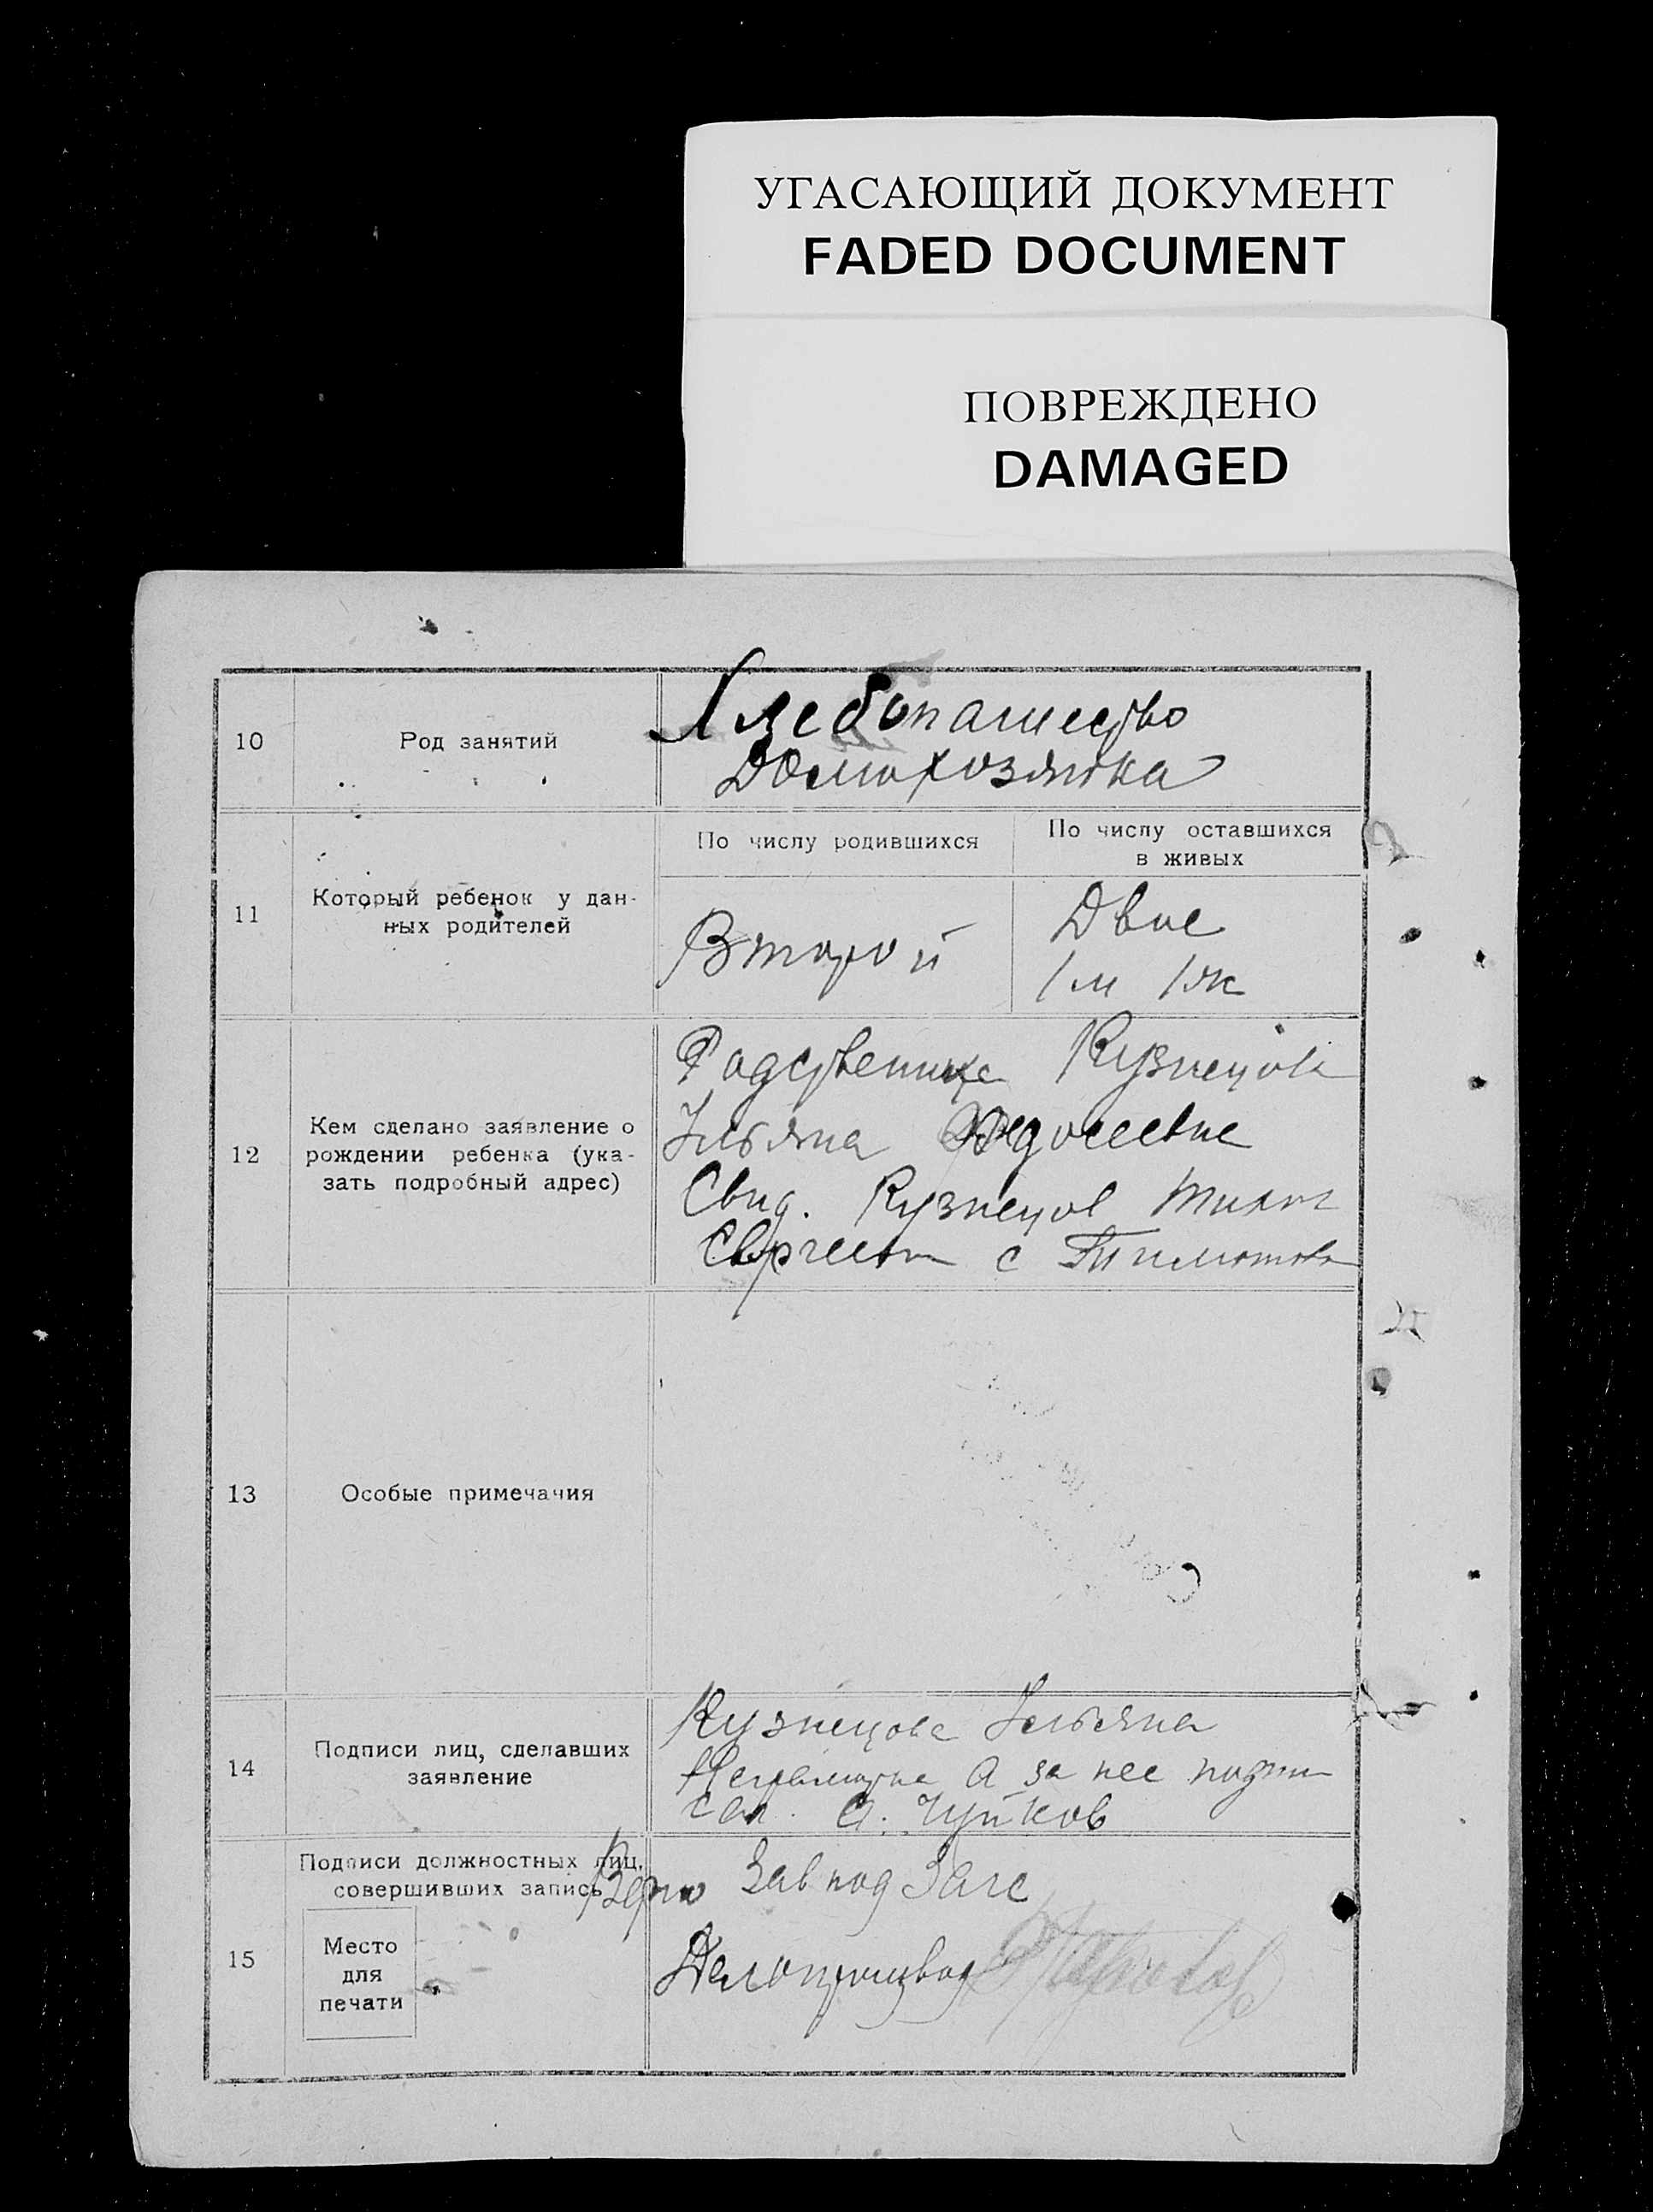 УГАСАЮЩИЙ ДОКУМЕНТ
FADED DOCUMENT
ПОВРЕЖДЕНО
DAMAGED
10
Род занятий
Хлебопашество
Домохозяйка
11
Который ребенок у дан-
ных родителей
По числу родившихся
По числу оставшихся
в живых
Второй
Двое
1 м 1 ж
12
Кем сделано заявление о
рождении ребенка (ука-
зать подробный адрес)
Кузнецова
Ульяна
Свид. Кузнецов Тихон
с
13
Особые примечания
14
Подписи лиц, сделавших
заявление
Кузнецова Ульяна
Неграмотна А за нее подпи
сал А. Чуйков
15
Подписи должностных лиц,
совершивших запись
Место
для
печати
Верно Зав под Загс
Делопроизвод